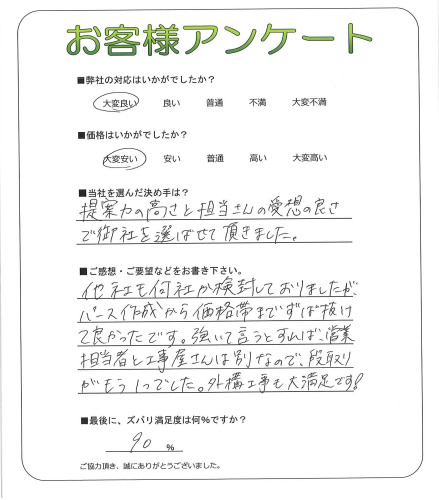 お客様アンケート
■弊社の対応はいかがでしたか?
大変良い 良い 普通 不満 大変不満
■価格はいかがでしたか?
大変安い 安い 普通 高い 大変高い
■当社を選んだ決め手は?
提案力の高さと担当さんの愛想の良さ
で御社を選ばせて頂きました。
■ご感想・ご要望などをお書き下さい。
他社も何社か検討しておりましたが、
パース作成から価格帯までずば抜け
て良かったです。強いて言うとすれば、営業
担当者と工事屋さんは別なので、段取り
がもう1つでした。外構工事も大満足です!
■最後に、ズバリ満足度は何%ですか?
90 %
ご協力頂き、誠にありがとうございました。